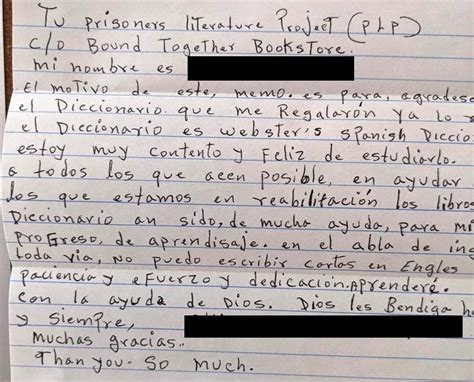 Tu prisoners literature Project (PLP)
c/o Bound Together Bookstore.
mi nombre es
El motivo de este, memo. es para, agradese
el Diccionario que me Regalarón ya lo
el Diccionario es webster's spanish Diccio
estoy muy contento y Feliz de estudiarlo.
a todos los que acen posible, en ayudar
los que estamos en reabilitación los libros
Diccionario an sido, de mucha ayuda, para mi
progreso, de aprendisaje. en el abla de ing
toda via, no puedo escribir cartas en Engles
paciencia y efuerzo y dedicación. Aprenderé.
con la ayuda de Dios. Dios les Bendiga
y siempre,
muchas gracias..
Than you. So much.